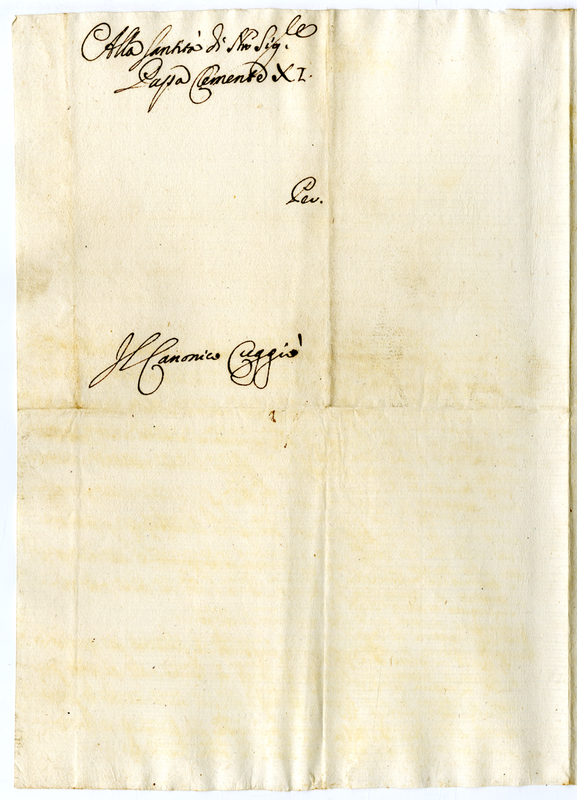 Alla Santità di Nro Sig.le
Papa Clemente XI.
Per.
Il Canonico Cuggiò